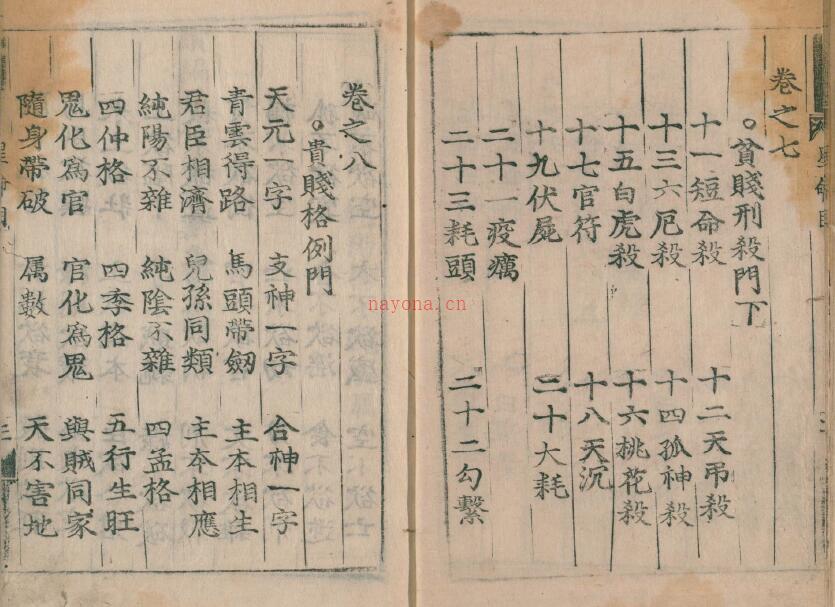 卷之七
。貧賤刑殺門下
十一短命殺 十二天吊殺
十三六厄殺 十四孤神殺
十五白虎殺 十六桃花殺
十七官符 十八天沉
十九伏屍 二十大耗
二十一疫癘
二十二勾繫
二十三耗頭
卷之八
。貴賤格例門
天元一字 支神一字 合神一字
青雲得路 馬頭帶劔 主本相生
君臣相濟 兒孫同類 主本相應
純陽不雜 純陰不雜 四孟格
四仲格 四季格 五行生旺
鬼化為官 官化為鬼 與賊同家
隨身帶破 属數 天不害地
nayona.cn